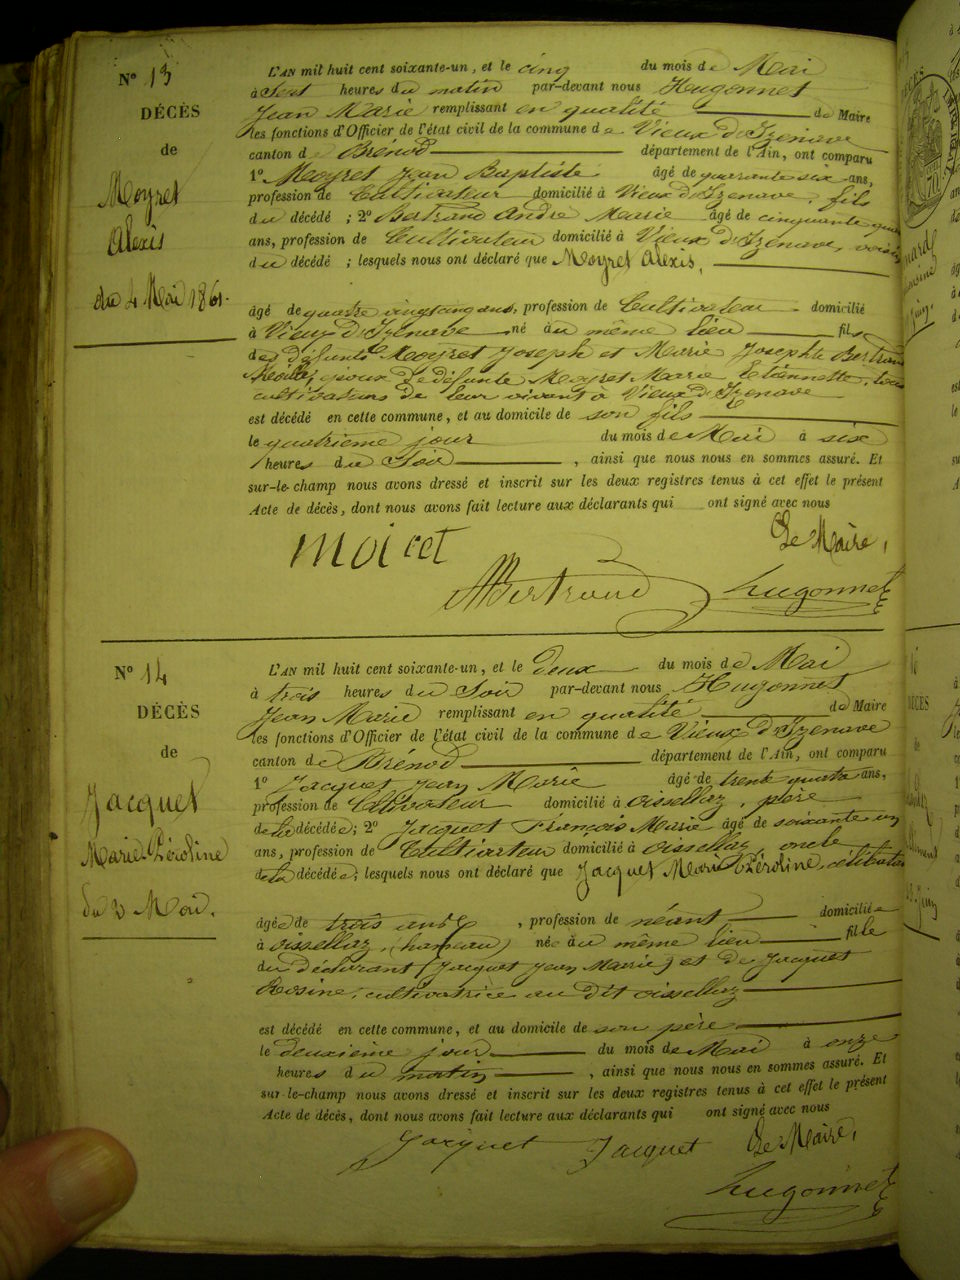 N° 13
DÉCÈS
de
Moyret
Alexis
du 4 Mai 1861.
L'AN mil huit cent soixante-un, et le cinq du mois de Mai
à sept heures du matin par-devant nous Hugonnet
Jean Marie remplissant en qualité de Maire
les fonctions d'Officier de l'état civil de la commune de Vieux d'Izenave
canton d Brénod département de l'Ain, ont comparu
1° Moyret Jean Baptiste âgé de quarante six ans,
profession de Cultivateur domicilié à Vieux d'Izenave, fils
du décédé ; 2° Bertrand André Marie âgé de cinquante
ans, profession de Cultivateur domicilié à Vieux d'Izenave, voisin
du décédé ; lesquels nous ont déclaré que Moyret Alexis,
âgé de quatre vingt cinq ans, profession de Cultivateur domicilié
à Vieux d'Izenave né au même lieu fils
des défunts Moyret Joseph et Marie Josephte Bertrand
époux de défunte Moyret Marie Etiennette, tous
cultivateurs de leur vivant à Vieux d'Izenave
est décédé en cette commune, et au domicile de son fils
le quatrième jour du mois de Mai à six
heures du Soir , ainsi que nous nous en sommes assuré. Et
sur-le-champ nous avons dressé et inscrit sur les deux registres tenus à cet effet le présent
Acte de décès, dont nous avons fait lecture aux déclarants qui ont signé avec nous
Le Maire,
moiret
ABertrand
hugonnet
N° 14
DÉCÈS
de
Jacquet
Marie Péroline
du 2 Mai.
L'AN mil huit cent soixante-un, et le deux du mois de Mai
à trois heures du Soir par-devant nous Hugonnet
Jean Marie remplissant en qualité de Maire
les fonctions d'Officier de l'état civil de la commune de Vieux d'Izenave
canton de Brénod département de l'Ain, ont comparu
1° Jacquet Jean Marie âgé de trente quatre ans,
profession de Cultivateur domicilié à oissellaz, père
de la décédée; 2° Jacquet François Marie âgé de soixante un
ans, profession de Cultivateur domicilié à oissellaz, oncle
de la décédée; lesquels nous ont déclaré que Jacquet Marie Péroline, célibataire
âgée de trois ans , profession de néant domiciliée
à oissellaz, (hameau) née au même lieu fille
du déclarant (Jacquet Jean Marie) et de Jacquet
Rosine, cultivatrice au dit oissellaz
est décédé en cette commune, et au domicile de son père
le deuxième jour du mois de Mai à onze
heures du matin , ainsi que nous nous en sommes assuré. Et
sur-le-champ nous avons dressé et inscrit sur les deux registres tenus à cet effet le présent
Acte de décès, dont nous avons fait lecture aux déclarants qui ont signé avec nous
Jacquet Jacquet Le Maire,
hugonnet